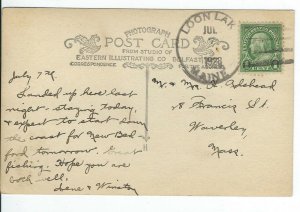 PHOTOGRAPH
POST CARD
FROM STUDIO OF
EASTERN ILLUSTRATING CO. BELFAST
CORRESPONDENCE
LOON LAK
JUL
MAINE
July 7th
Landed up here last
night - staying today,
& expect to start down
the coast for New Bed-
ford tomorrow. Great
fishing. Hope you are
both well.
Irene & Winston
Mr. & Mrs.
18 Francis St.
Waverley
Mass.